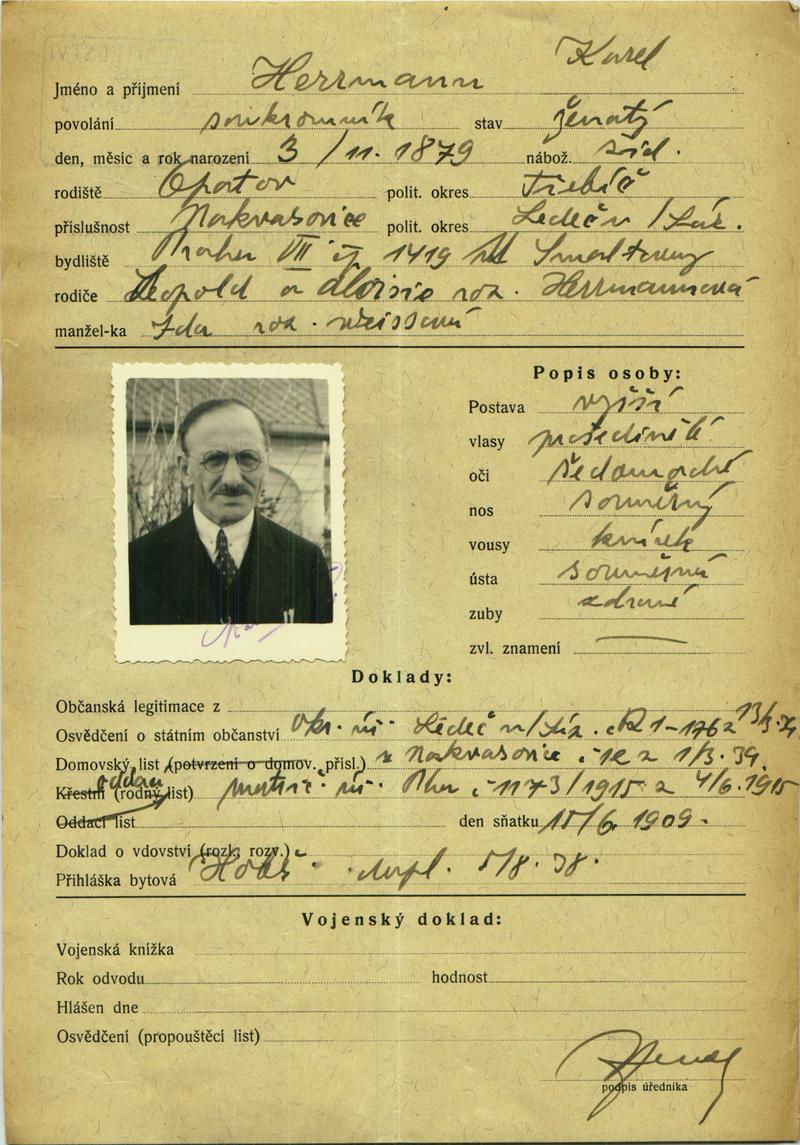 Karel
Jméno a příjmení Herrmann
povolání soukromník stav ženatý
den, měsíc a rok narození 3/11. 1879 nábož. žid.
rodiště Opatov polit. okres Třebíč
příslušnost Nakvasovice polit. okres Ledeč n/Sáz.
bydliště Praha VII čp 1419
rodiče Leopold a Aloisie roz. Herrmannová
manžel-ka Ida roz. Weissová
Popis osoby:
Postava vyšší
vlasy prošedivělé
oči šedomodré
nos souměrný
vousy knírek
ústa souměrná
zuby zdravé
zvl. znamení
Doklady:
Občanská legitimace z
Osvědčení o státním občanství okr. úř. Ledeč n/Sáz.
Domovský list (potvrzení o domov. přísl.) z Nakvasovice 1/3. 39.
oddací
Křestní (rodný list) č 1173/1915 z 4/6. 1915
Oddací list den sňatku 15/6 1909.
Doklad o vdovství (rozl., rozv.)
Přihláška bytová 5/8. 38.
Vojenský doklad:
Vojenská knížka
Rok odvodu hodnost
Hlášen dne
Osvědčení (propouštěcí list)
podpis úředníka